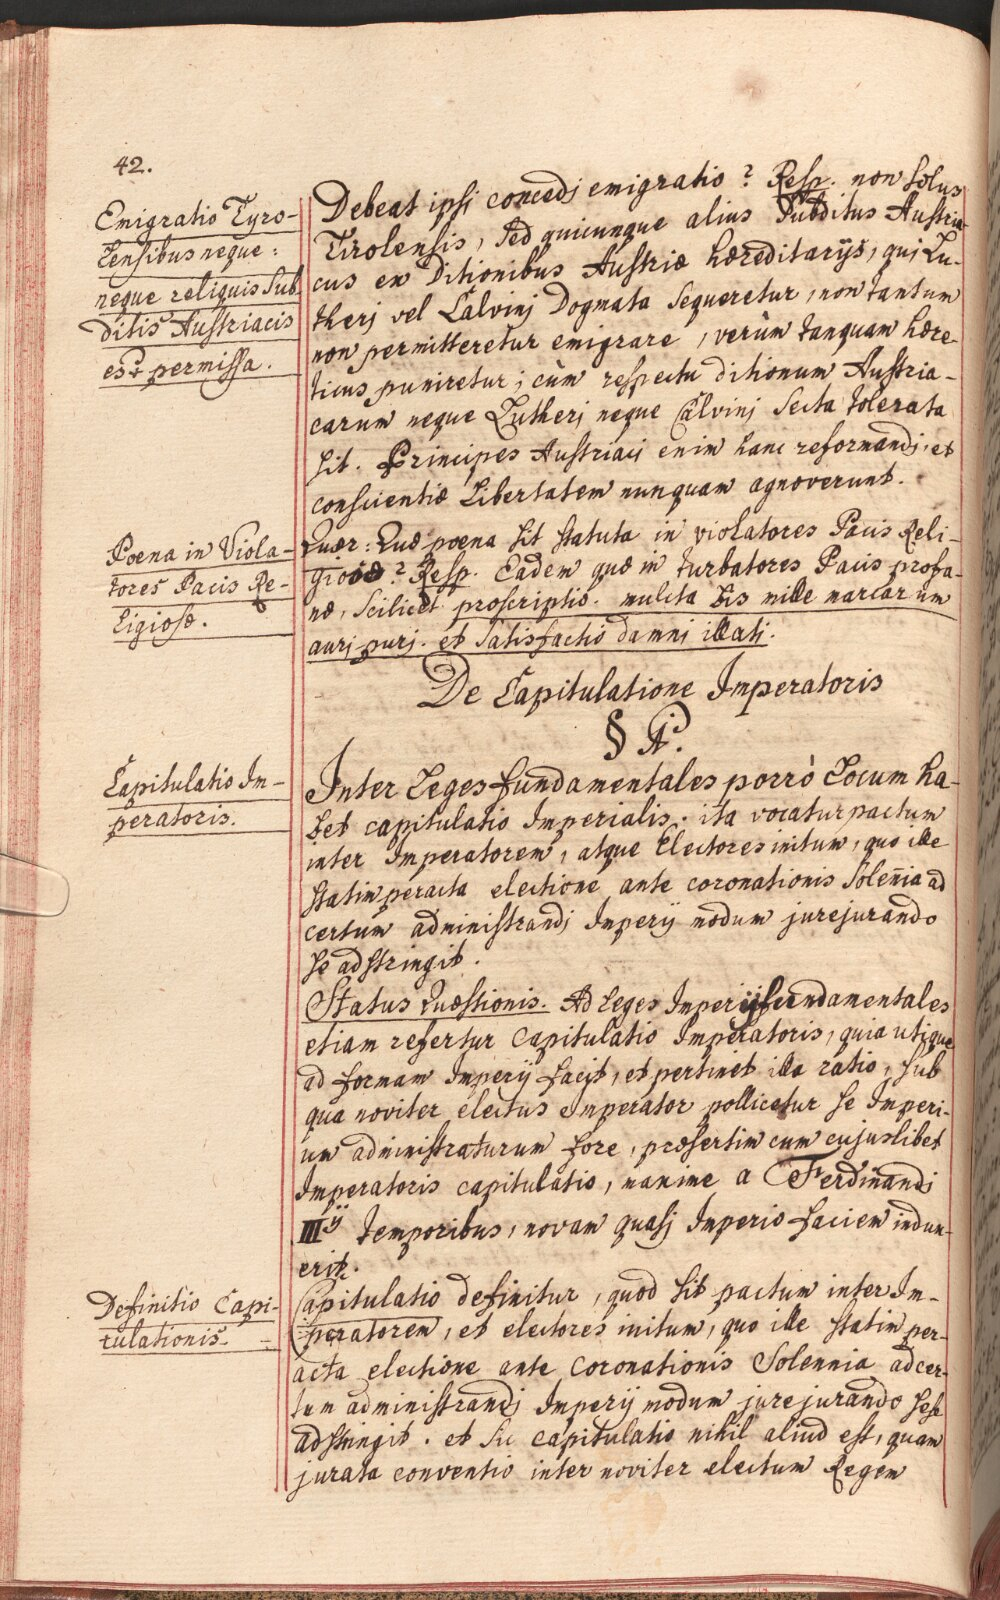 42.
Emigratio Tyro-
lensibus neque:
neque reliquis Sub
ditis Austriacis
est permissa.
Debeat ipsi concedi emigratio? Resp. non solus
Tirolensis, sed quicunque alius Subditus Austria-
cus ex Ditionibus Austriæ hæreditarijs, qui Lu-
theri vel Calvini Dogmata sequeretur, non tantum
non permitteretur emigrare, verùm tanquam hære-
ticus puniretur; cùm respectu ditionum Austria-
carum neque Lutheri neque Calvini Secta tolerata
sit. Principes Austriaci enim hanc reformandi, et
conscientiæ Libertatem nunquam agnoverunt.
Poena in Viola-
tores Pacis Re-
ligiosæ.
Quær: Quæ poena sit statuta in violatores Pacis Reli-
giosæ? Resp. Eadem quæ in turbatores Pacis profa-
næ, scilicet proscriptio. mulcta bis mille marcarum
auri puri. et satisfactio damni illati.
De Capitulatione Imperatoris
§
Capitulatio Im-
peratoris.
Inter Leges fundamentales porrò Locum ha-
bet capitulatio Imperialis. ita vocatur pactum
inter Imperatorem, atque Electores initum, quo ille
statim peracta electione ante coronationis Soleñia ad
certum administrandi Imperij modum jurejurando
se adstringit.
Status Quæstionis. Ad Leges Imperij fundamentales
etiam refertur Capitulatio Imperatoris, quia utique
ad formam Imperij facit, et pertinet illa ratio, sub
qua noviter electus Imperator pollicetur se Imperi-
um administraturum fore, præsertim cum cujuslibet
Imperatoris capitulatio, maxime a Ferdinandi
III ij temporibus, novam quasi Imperio faciem indux-
erit.
Definitio Capi-
tulationis.
Capitulatio definitur, quod sit pactum inter Im-
peratorem, et electores initum, quo ille statim per-
acta electione ante Coronationis Solennia ad cer-
tum administrandi Imperij modum jurejurando sese
adstringit. et sic capitulatio nihil aliud est, quam
jurata conventio inter noviter electum Regem